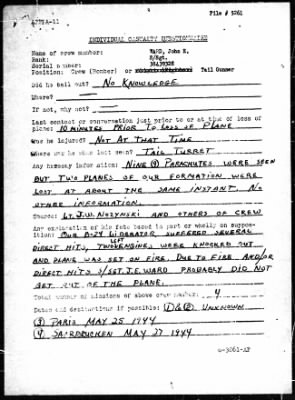 File # 3261
INDIVIDUAL CASUALTY QUESTIONNAIRE
Name of crew member: WARD, John E.
Rank: S/Sgt.
Serial number:
Position: Crew (Bomber) or Tail Gunner
Did he bail out? NO KNOWLEDGE
Where?
If not, why not?
Last contact or conversation just prior to or at time of loss of
plane: 10 MINUTES PRIOR TO LOSS OF PLANE
Was he injured? NOT AT THAT TIME
Where was he when last seen? TAIL TURRET
Any hearsay information: NINE (9) PARACHUTES WERE SEEN
BUT TWO PLANES OF OUR FORMATION WERE
LOST AT ABOUT THE SAME INSTANT. NO
OTHER INFORMATION.
Source: LT. J.W. NOSYNSKI AND OTHERS OF CREW
Any explanation of his fate based in part or wholly on suppo-
sition: OUR B-24 LIBERATOR SUFFERED SEVERAL
DIRECT HITS, TWO LEFT ENGINES WERE KNOCKED OUT
AND PLANE WAS SET ON FIRE. DUE TO FIRE AND/OR
DIRECT HITS S/SGT. J.E. WARD PROBABLY DID NOT
GET OUT OF THE PLANE.
Total number of missions of above crew member: 4
Dates and destinations if possible: (1)&(2) UNKNOWN
(3) PARIS MAY 25 1944
(4) SAARBRUCKEN MAY 27 1944
6-3861-AF